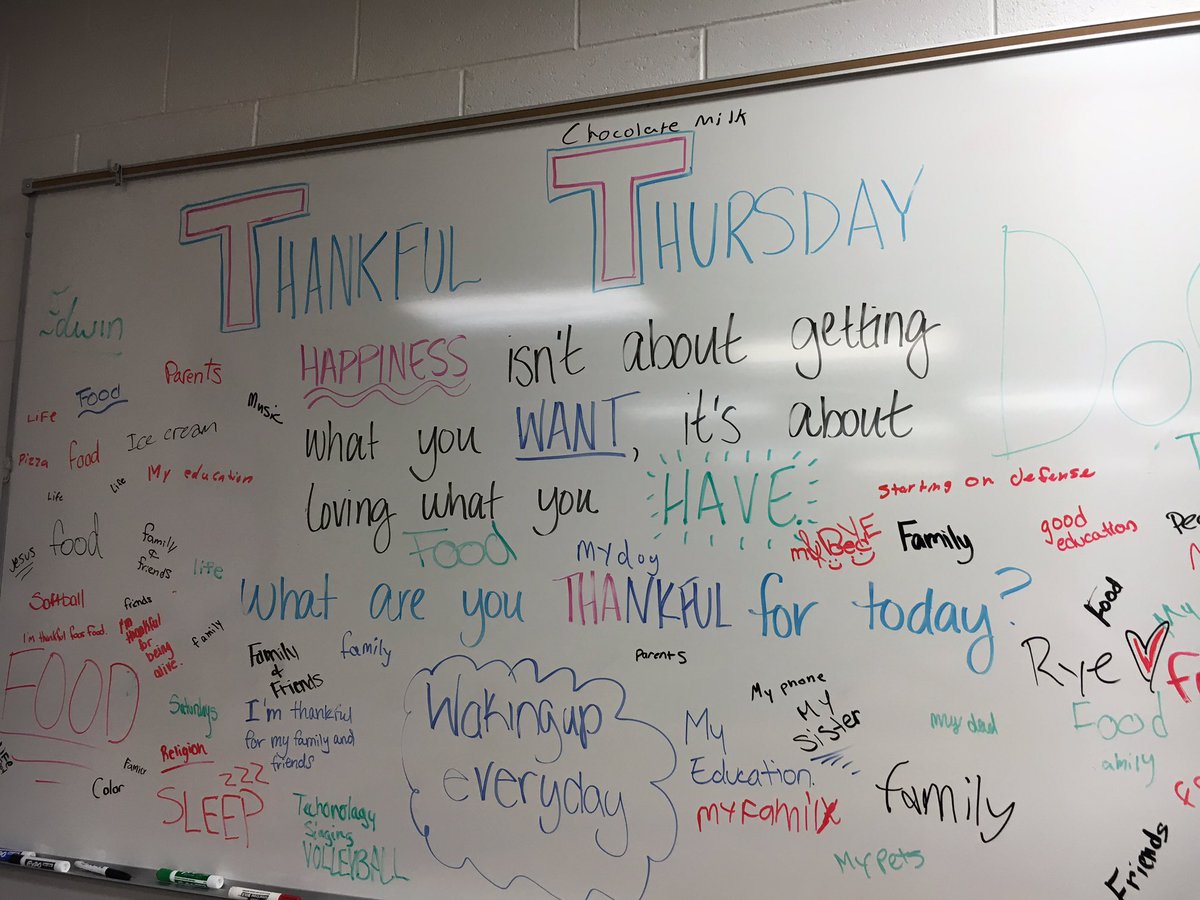 Chocolate Milk
THANKFUL THURSDAY
HAPPINESS isn't about getting
what you WANT, it's about
loving what you HAVE.
What are you THANKFUL for today?
Edwin
Parents
Food
Life
Music
Ice cream
Pizza
food
My education
Life
Life
food
family
&
friends
Jesus
life
Softball
friends
I'm thankful foor food.
I'm
thankful
for
being
alive.
family
FOOD
Saturdays
Religion
Color
zzz
SLEEP
Family
&
Friends
family
I'm thankful
for my family and
friends
Techonology
Singing
VOLLEYBALL
Food
My dog
Waking up
everyday
Parents
My phone
My
sister
My
Education.
My Family
My Pets
my dad
family
starting on defense
Family
good
education
Food
Rye
Food
amily
Friends